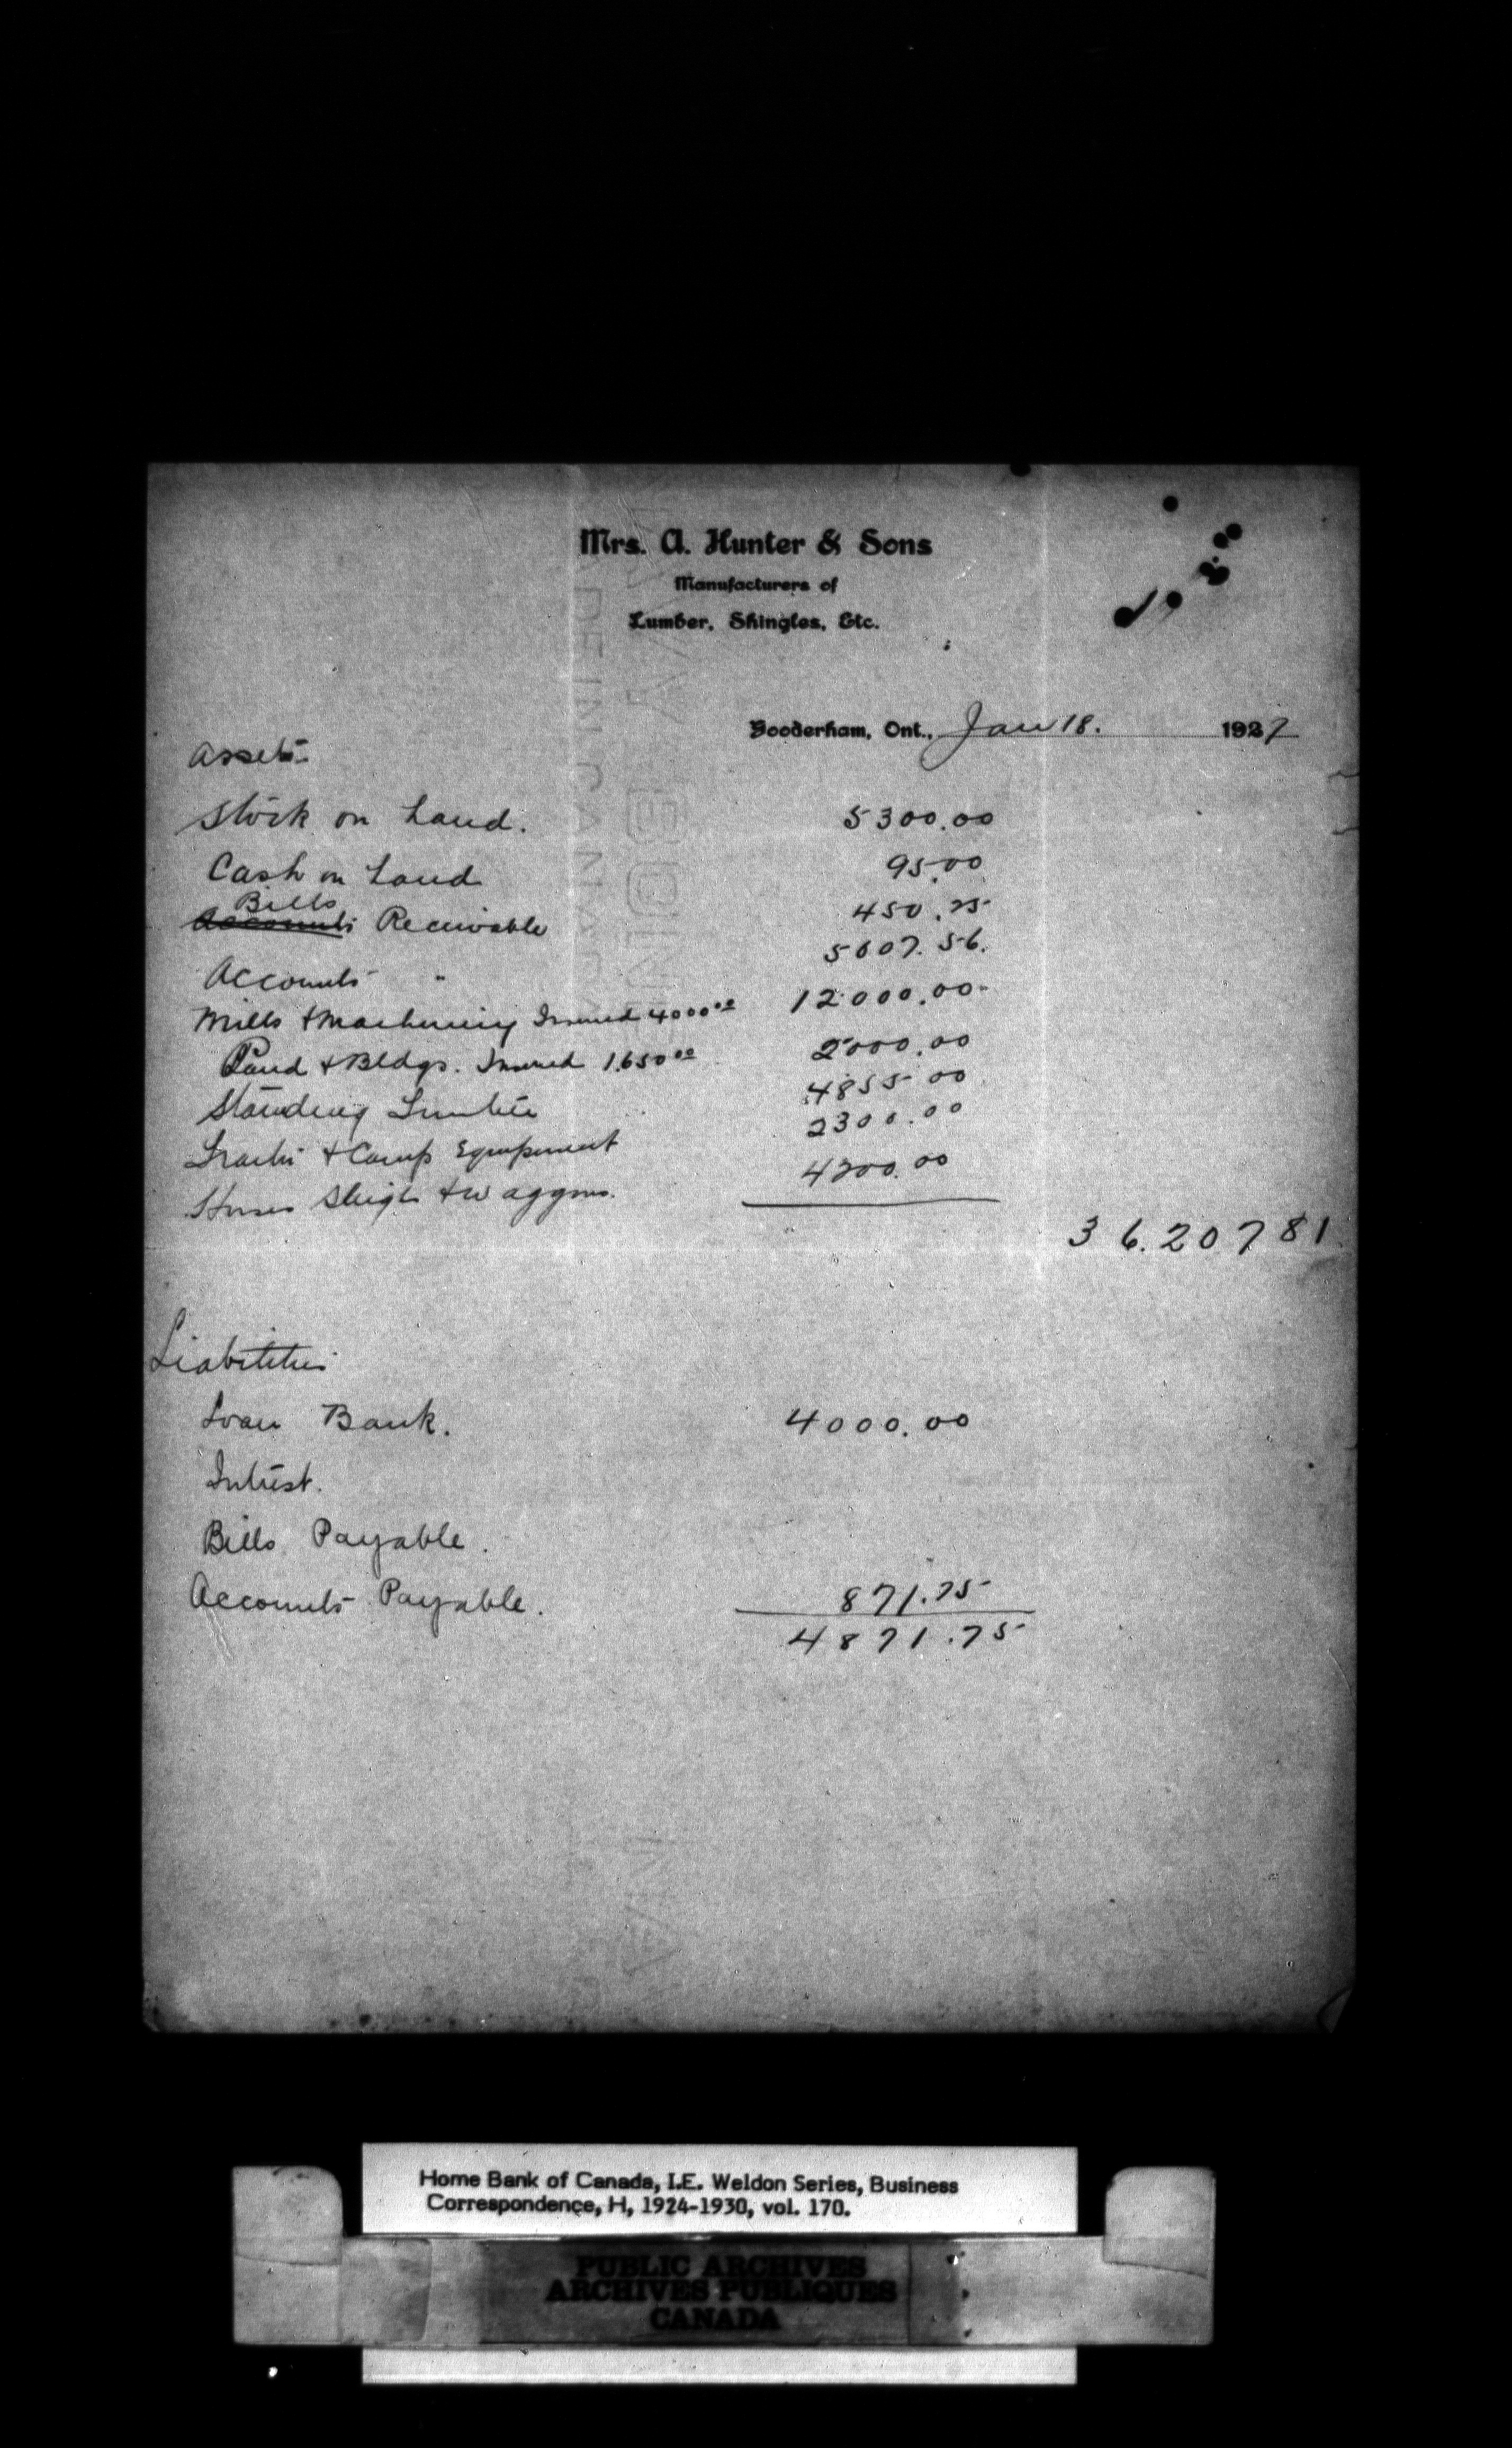 Mrs. A. Hunter & Sons
Manufacturers of
Lumber, Shingles, Etc.
Gooderham, Ont., Jan 18. 1927
Assets
Stock on hand. 5300.00
Cash on hand 95.00
Bills
Accounts Receivable 450.25
Accounts " 5007.56.
Mills + Machinery Insured 4000.00 12000.00
Land + Bldgs. Insured 1650.00 2000.00
Standing Timber 4855.00
+ Camp Equipment 2300.00
Horses Sleighs + Waggons. 4200.00
36.207 81
Liabilities
Loan Bank. 4000.00
Interest.
Bills Payable.
Accounts Payable. 871.75
4871.75
Home Bank of Canada, I.E. Weldon Series, Business
Correspondence, H, 1924-1930, vol. 170.
PUBLIC ARCHIVES
ARCHIVES PUBLIQUES
CANADA